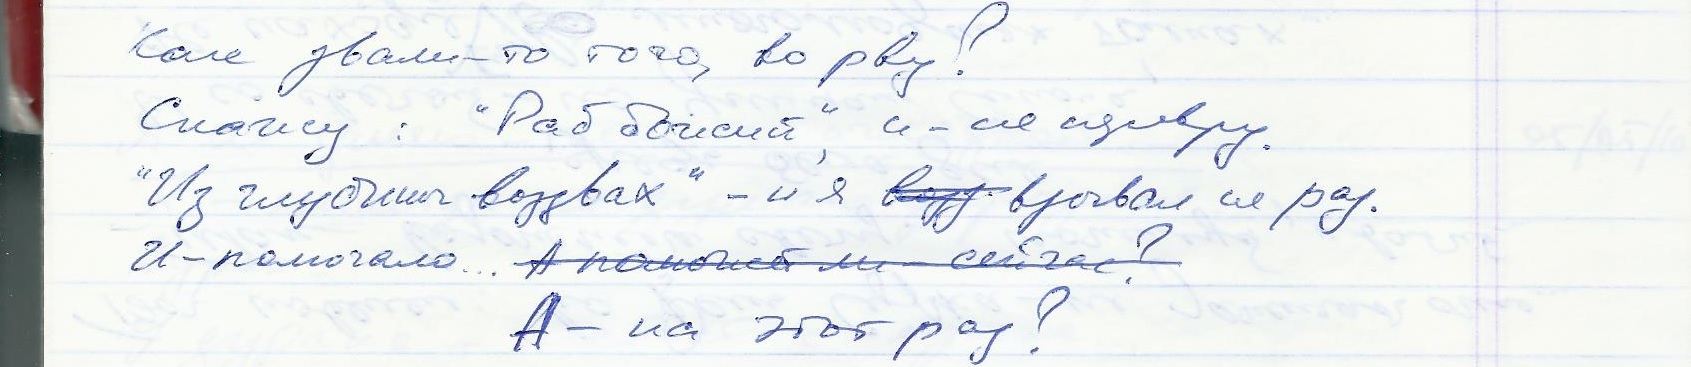 Как звали-то того, во рву?
Скажу: "Раб божий", и - не совру.
"Из глубины воззвах" - и я взывал не раз.
И - помогало... А поможет ли - сейчас?
А - на этот раз?